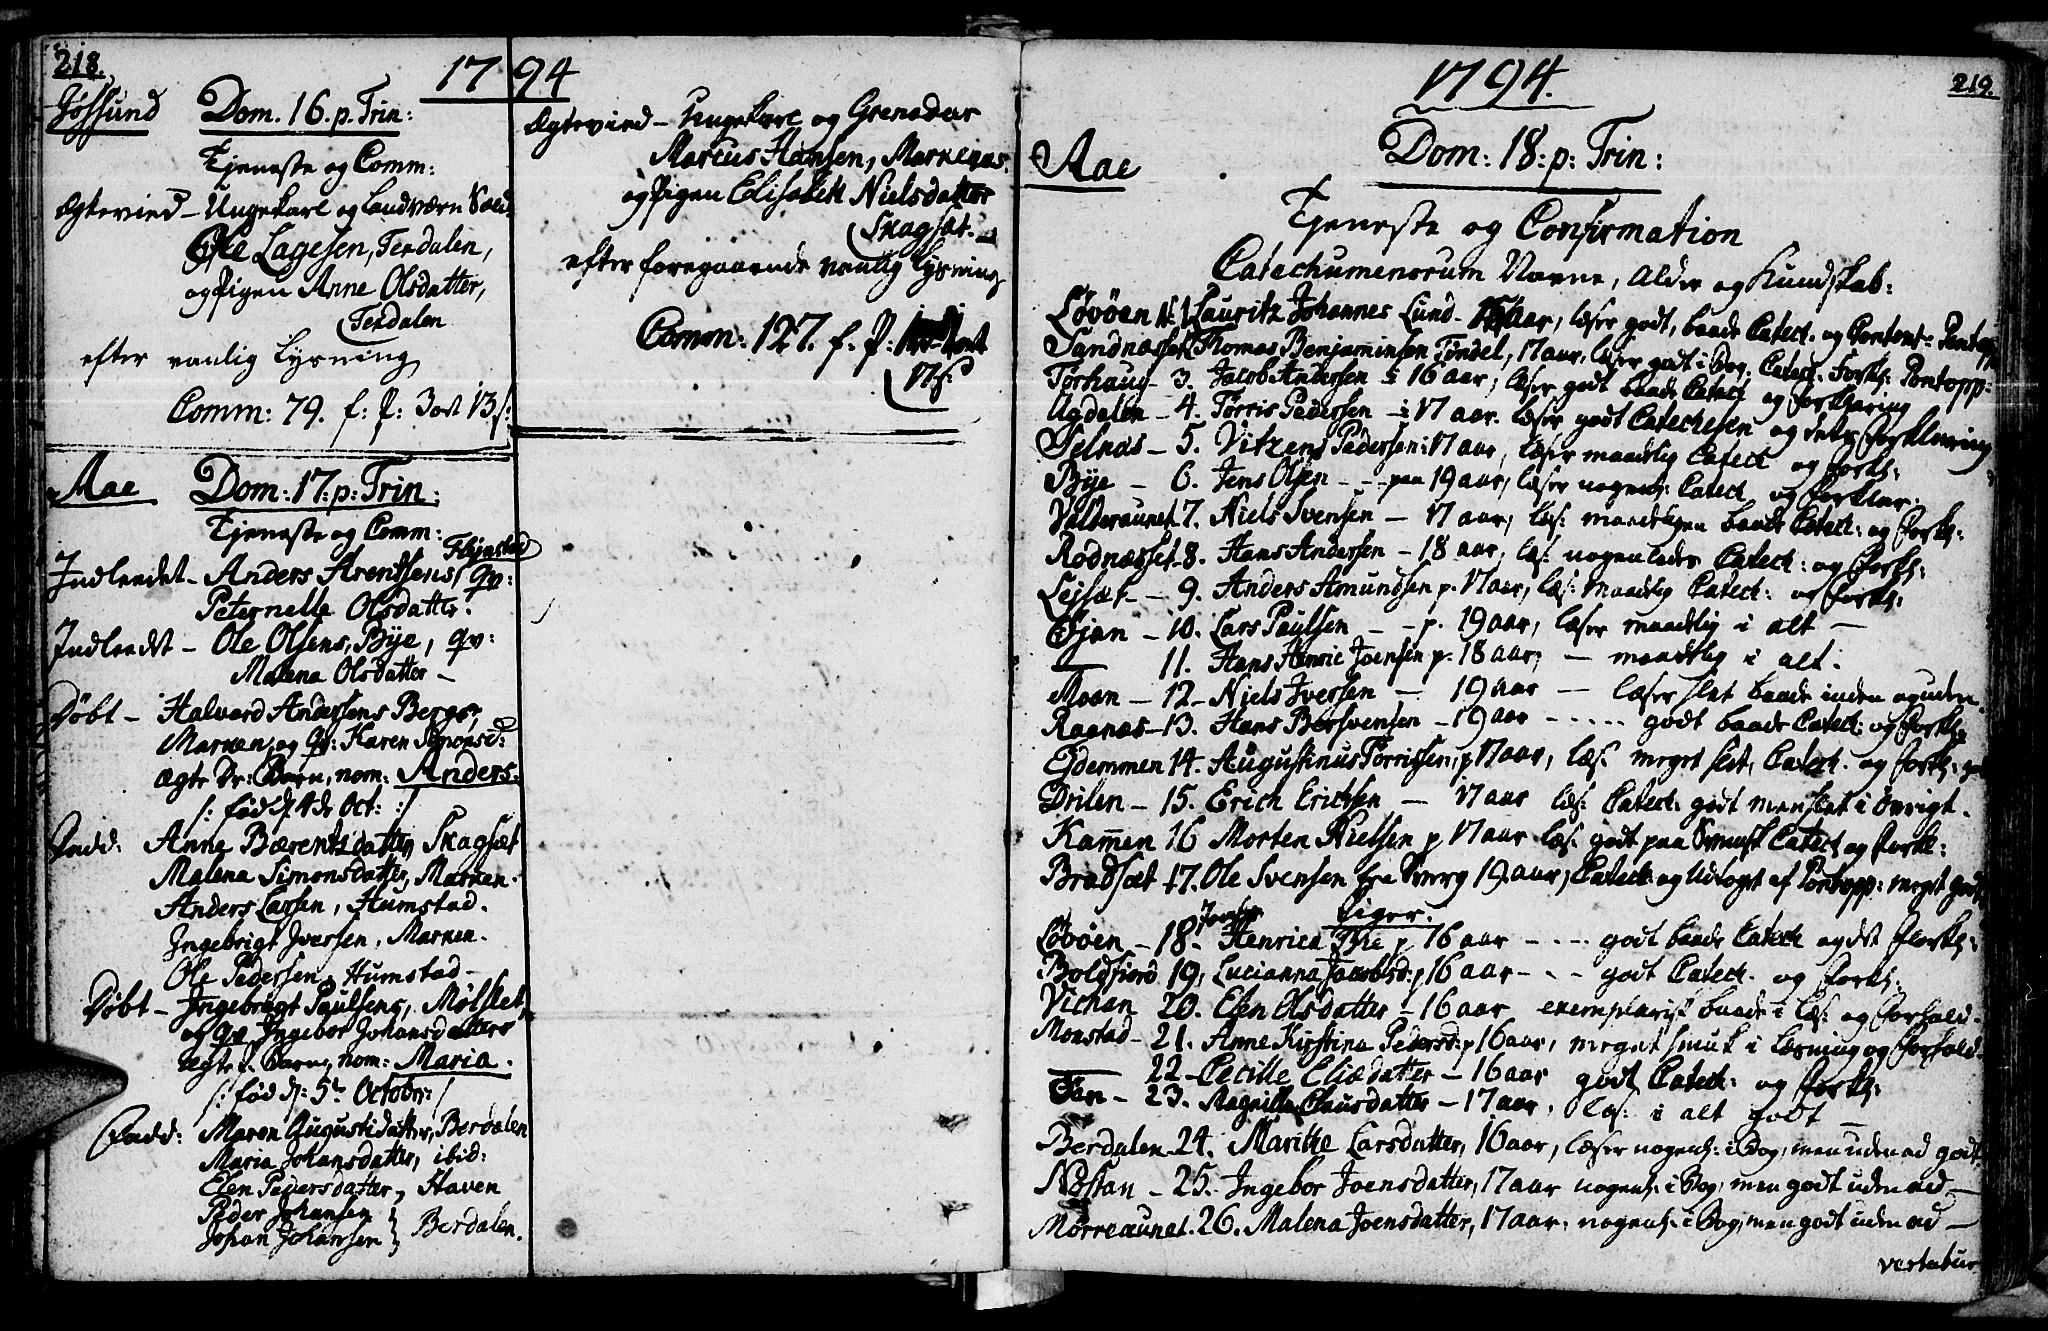 218.
1794
Jøssund Dom. 16. p. Trin:
Tjeneste og Comm:
Ægtevied – Ungekarl og Landværn Sold:
Ole Lagesen, Terdalen,
og Pigen Anne Olsdatter,
Terdalen
efter vanlig Lysning
Comm: 79. f: P: 3 ort 13 s:
Aae Dom: 17: p: Trin:
Tjeneste og Comm:
Indleedet – Anders Arentsens Flijnstad qv:
Peternelle Olsdatter.
Indleedt – Ole Olsens, Bÿe, qv:
Malena Olsdatter –
Døbt – Halvard Andersens Bergs,
Marken, og qv: Karen Simonsd:
ægte Barn, nom: Anders.
/: fød d: 4de Oct: :/
Fadd: Anne Bærentsdatter, Skagsæt
Malena Simonsdatter, Marken.
Anders Larsen, Humstad.
Ingebrigt Iversen, Marken.
Ole Pedersen, Humstad –
Døbt – Ingebrigt Paulsens, Mølslet,
og qv Ingebor Johansdatters
ægte Barn, nom: Maria.
/: fød d: 5te Octobr: /
Fadd: Maren Augustidatter, Berdalen
Maria Johansdatter, ibid:
Elen Pedersdatter, Haven
Peder Johansen }
Johan Johansen } Berdalen.
Ægtevied – Ungekarl og Grenadeer
Marcus Hansen, Markenas.
og Pigen Elisabeth Nielsdatter
Skagsæt. –
efter foregaaende vanlig Lysning
Comm: 127. f: P:
219.
1794.
Aae Dom: 18: p: Trin:
Tjeneste og Confirmation
Catechumenorum Navne, Alder og Kundskab:
Løvøen No 1 Lauritz Johannes Lund – aar, læser godt, baade Catech. og Pontopp
Sandnæsset Thomas Benjaminsen Tøndel, 17 aar, læser godt i Bog, Catech. Forkl: Pontopp:
Tørhaug – 3. Jacob Andersen 16 aar, læser godt baade Catech og Forklaring
Agdalen – 4. Tørris Pedersen – 17 aar. læser godt Catechesen og dets Forklaring
Selnas – 5. Vitzens Pedersen: 17 aar, læser maadelig Catech og Forkl:
Bÿe – 6. Jens Olsen – – paa 19 aar, læser nogenl: Catech og Forklar.
Valderaunet 7. Niels Svensen – 17 aar, læs: maadeligen baade Catech: og Forkl:
Rødnæsset 8. Hans Andersen – 18 aar, læs: nogenledes Catech: og Forkl:
Lejsæt – 9. Anders Amundsen p. 17 aar, læs: maadelig Catech: og Forkl:
Gjan – 10. Lars Paulsen – – p. 19 aar, læser maadelig i alt –
— 11. Hans Henric Joensen p. 18 aar, – maadelig i alt.
Moan – 12 – Niels Iversen – 19 aar – læser slet baade inden og uden.
Raanas – 13. Hans Bersvensen – 19 aar – . . . . godt baade Catech: og Forkl:
Ejdemmen 14. Augustinus Tørrissen, p 17 aar, læs: meget slet, Catech. og Forkl:
Drilen – 15. Erich Erichsen – 17 aar læs: Catech: godt men slet i øvrigt.
Kam̄en 16 Morten Nielsen p 17 aar læs: godt paa Catech og Forkl:
Bradsæt 17. Ole Svensen fra 19 aar, Catech: og Udtoget af Pontopp: meget godt
Piger.
Løvøen – 18. Henrica p 16 aar – . . . godt baade Catech og det Forkl:
Boldfiorø 19, Lucianna Jacobsd: p 16 aar – . . – godt Catech. og Forkl:
Vichan 20. Elen Olsdatter – 16 aar exemplarisk baade i Læs: og Forhold.
Monstad – 21. Anne Kirstina Pedersd: p 16 aar, meget smuk i Læsning og Forhold.
— 22 – Cecille Eliædatter – 16 aar godt Catech: og Forkl:
Fan – 23. Magnille Clausdatter – 17 aar. læs: i alt godt –
Berdalen 24. Marithe Larsdatter, 16 aar, læser nogenl: i Bog, men uden ad godt.
Nøstan – 25. Ingebor Joensdatter, 17 aar nogenl: i Bog, men godt uden ad –
Morreaunet. 26. Malena Joensdatter, 17 aar: nogenl: i Bog, men godt uden ad –
vertatur